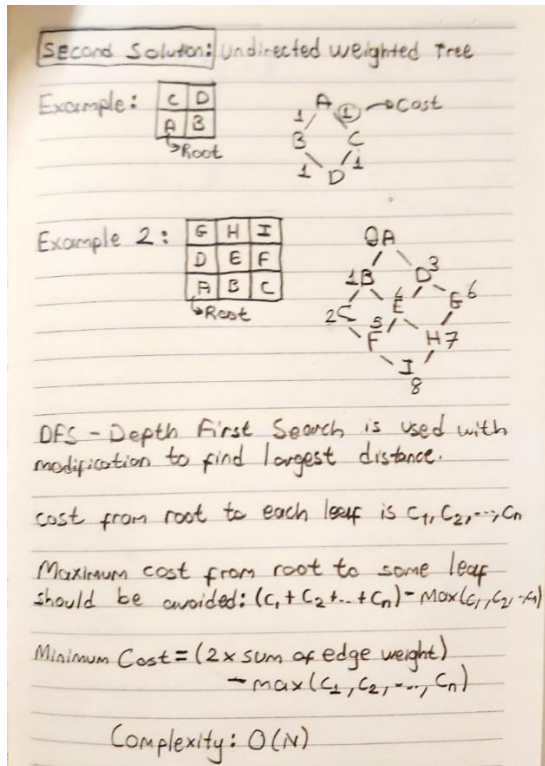 Second Solution: Undirected Weighted Tree
Example:
C D
A B
Root
A
1 1 Cost
B C
1 D 1
Example 2:
G H I
D E F
A B C
Root
0A
1B D3
2C E4 G6
5F H7
I
8
DFS - Depth First Search is used with
modification to find largest distance.
cost from root to each leaf is C1, C2, ..., Cn
Maximum cost from root to some leaf
should be avoided: (C1 + C2 + .. + Cn) - Max(C1, C2, ..Cn)
Minimum Cost = (2 x sum of edge weight)
- max (C1, C2, ..., Cn)
Complexity: O(N)